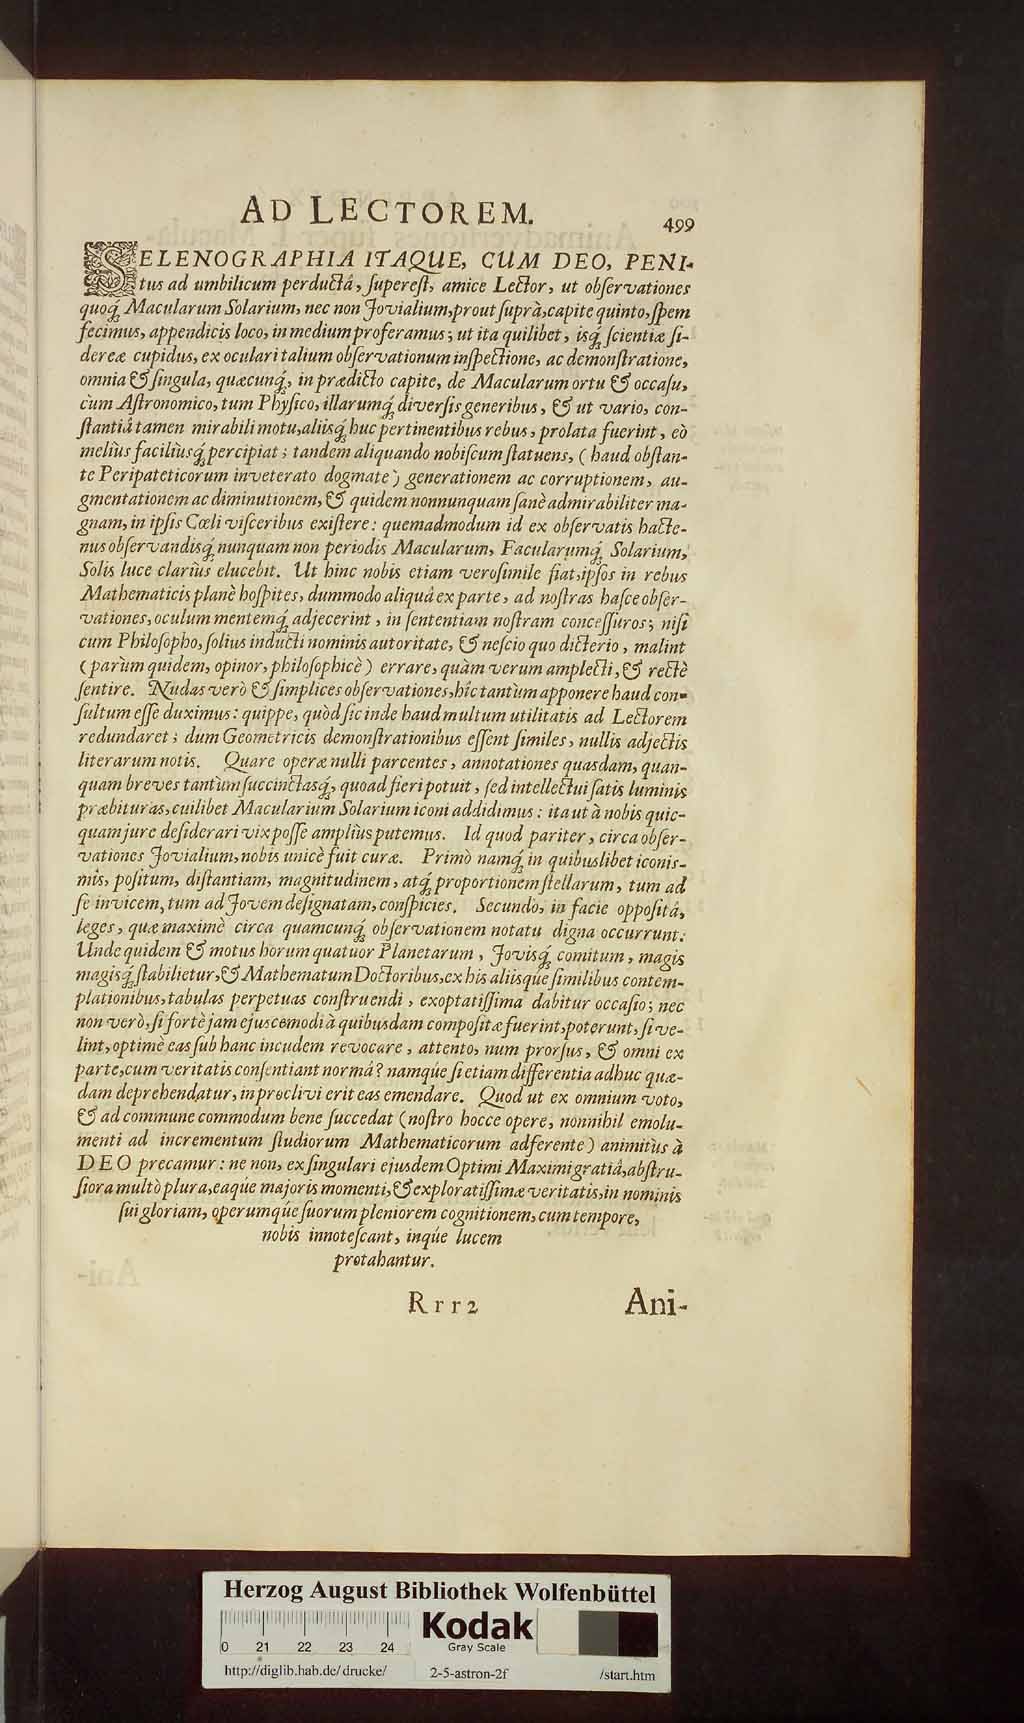 AD LECTOREM.
499
SELENOGRAPHIA ITAQUE, CUM DEO, PENI-
tus ad umbilicum perductâ, ſupereſt, amice Lector, ut obſervationes
quoq́; Macularum Solarium, nec non Jovialium, prout ſuprà, capite quinto, ſpem
fecimus, appendicis loco, in medium proferamus; ut ita quilibet, isq́; ſcientiæ ſi-
dereæ cupidus, ex oculari talium obſervationum inſpectione, ac demonſtratione,
omnia & ſingula, quæcunq́;, in prædicto capite, de Macularum ortu & occaſu,
cùm Aſtronomico, tum Phyſico, illarumq́; diverſis generibus, & ut vario, con-
ſtantiâ tamen mirabili motu, aliisq́; huc pertinentibus rebus, prolata fuerint, eò
meliùs faciliùsq́; percipiat; tandem aliquando nobiſcum ſtatuens, (haud obſtan-
te Peripateticorum inveterato dogmate) generationem ac corruptionem, au-
gmentationem ac diminutionem, & quidem nonnunquam ſanè admirabiliter ma-
gnam, in ipſis Cœli viſceribus exiſtere: quemadmodum id ex obſervatis hacte-
nus obſervandisq́; nunquam non periodis Macularum, Facularumq́; Solarium,
Solis luce clariùs elucebit. Ut hinc nobis etiam veroſimile fiat, ipſos in rebus
Mathematicis planè hoſpites, dummodo aliquâ ex parte, ad noſtras haſce obſer-
vationes, oculum mentemq́; adjecerint, in ſententiam noſtram conceſſuros; niſi
cum Philoſopho, ſolius inducti nominis autoritate, & neſcio quo dicterio, malint
(parùm quidem, opinor, philoſophicè) errare, quàm verum amplecti, & rectè
ſentire. Nudas verò & ſimplices obſervationes, hîc tantùm apponere haud con-
ſultum eſſe duximus: quippe, quòd ſic inde haud multum utilitatis ad Lectorem
redundaret; dum Geometricis demonſtrationibus eſſent ſimiles, nullis adjectis
literarum notis. Quare operæ nulli parcentes, annotationes quasdam, quan-
quam breves tantùm ſuccinctasq́;, quoad fieri potuit, ſed intellectui ſatis luminis
præbituras, cuilibet Macularium Solarium iconi addidimus: ita ut à nobis quic-
quam jure deſiderari vix poſſe ampliùs putemus. Id quod pariter, circa obſer-
vationes Jovialium, nobis unicè fuit curæ. Primò namq́; in quibuslibet iconis-
mis, poſitum, diſtantiam, magnitudinem, atq́; proportionem ſtellarum, tum ad
ſe invicem, tum ad Jovem deſignatam, conſpicies. Secundò, in facie oppoſitâ,
leges, quæ maximè circa quamcunq́; obſervationem notatu digna occurrunt.
Unde quidem & motus horum quatuor Planetarum, Jovisq́; comitum, magis
magisq́; ſtabilietur, & Mathematum Doctoribus, ex his aliisque ſimilibus contem-
plationibus, tabulas perpetuas conſtruendi, exoptatiſſima dabitur occaſio; nec
non verò, ſi fortè jam ejuscemodi à quibusdam compoſitæ fuerint, poterunt, ſi ve-
lint, optimè eas ſub hanc incudem revocare, attento, num prorſus, & omni ex
parte, cum veritatis conſentiant normâ? namqúe ſi etiam differentia adhuc quæ-
dam deprehendatur, in proclivi erit eas emendare. Quod ut ex omnium voto,
& ad commune commodum bene ſuccedat (noſtro hocce opere, nonnihil emolu-
menti ad incrementum ſtudiorum Mathematicorum adferente) animitùs à
DEO precamur: ne non, ex ſingulari ejusdem Optimi Maximi gratiâ, abſtru-
ſiora multò plura, eaqúe majoris momenti, & exploratiſſimæ veritatis, in nominis
ſui gloriam, operumqúe ſuorum pleniorem cognitionem, cum tempore,
nobis innoteſcant, inqúe lucem
protahantur.
Rrr2
Ani-
Herzog August Bibliothek Wolfenbüttel
0 21 22 23 24
Kodak
Gray Scale
http://diglib.hab.de/drucke/ 2-5-astron-2f /start.htm